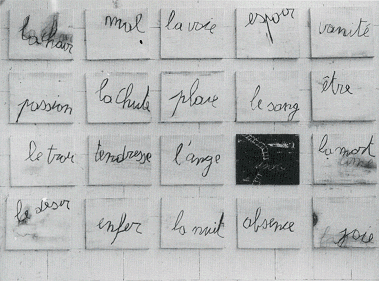 la chair mal la voie espoir vanité
passion la chute place le sang être
le trou tendresse l'ange la mort
le désir enfer la nuit absence joie